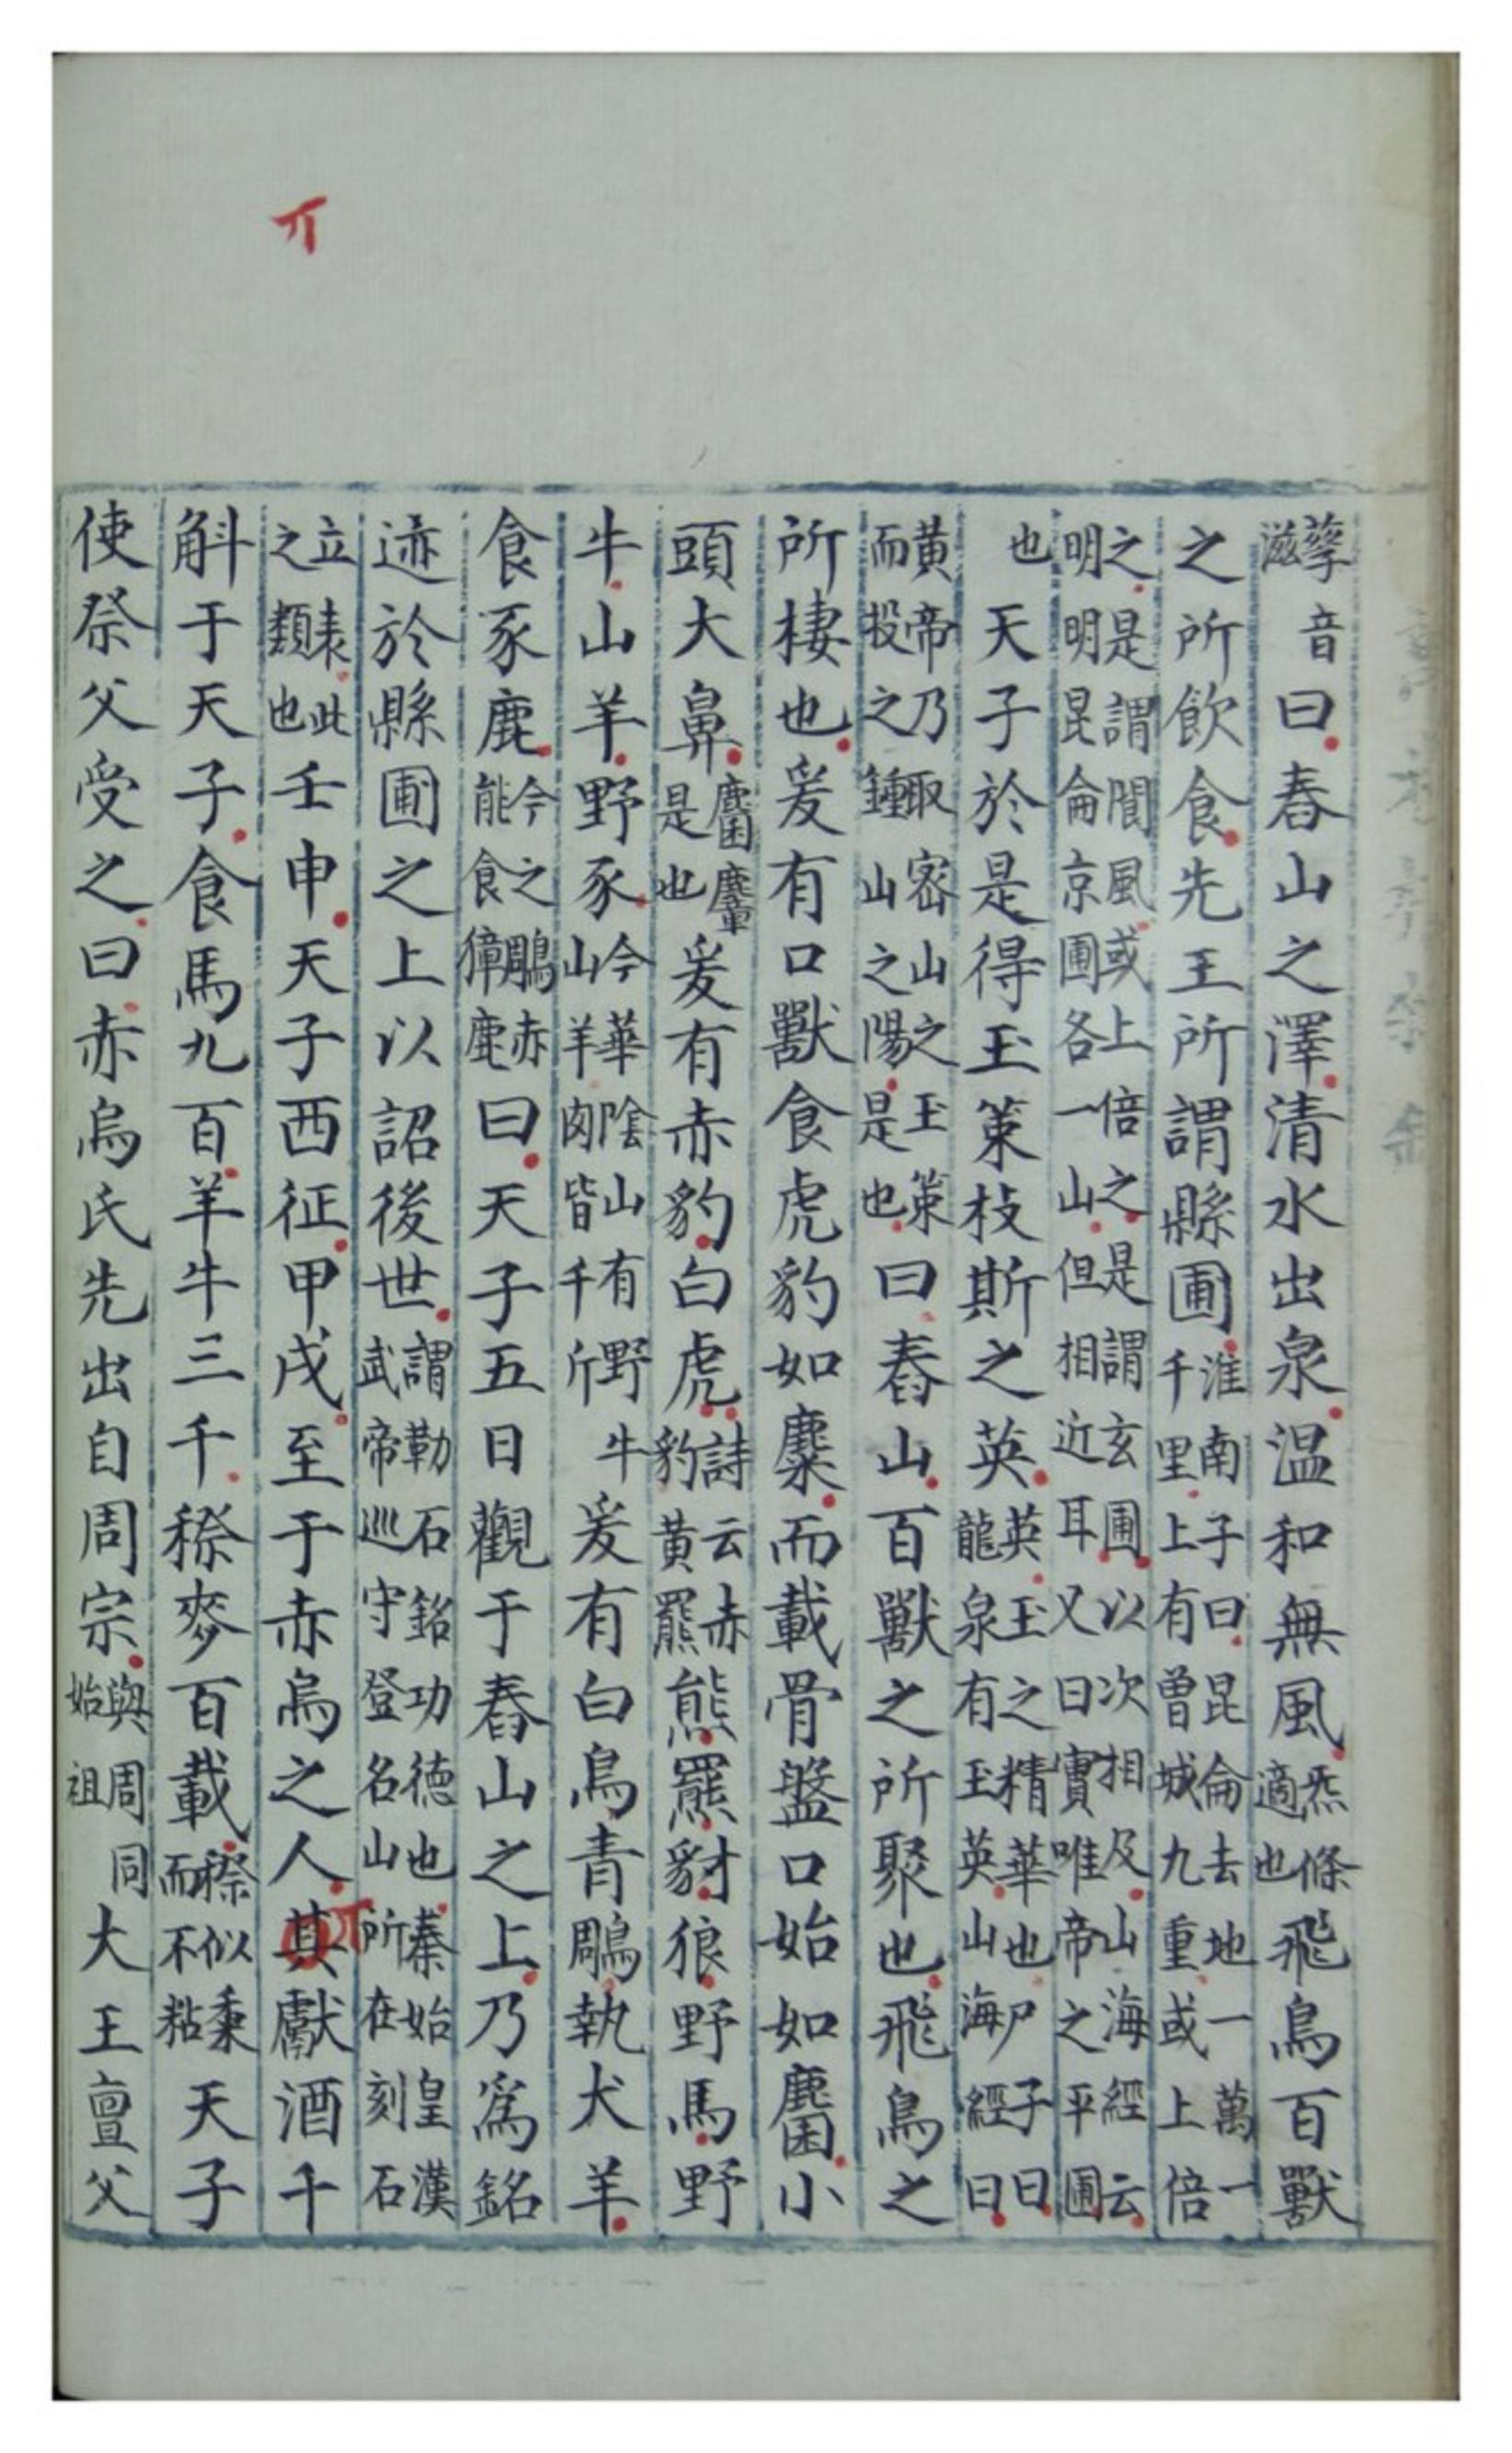 孳音滋曰舂山之澤清水出泉温和無風炁條適也飛鳥百獸
之所飲食先王所謂縣圃淮南子曰昆侖去地一萬一千里上有曾城九重或上倍
之是謂閬風或上倍之是謂玄圃以次相及山海經云明明昆侖京圃各一山但相近耳又曰實唯帝之平圃
也天子於是得玉策枝斯之英英玉之精華也尸子曰龍泉有玉英山海經曰
黄帝乃取密山之玉策而投之鍾山之陽是也曰舂山百獸之所聚也飛鳥之
所棲也爰有口獸食虎豹如麋而載骨盤口始如麕小
頭大鼻麕麞是也爰有赤豹白虎詩云赤豹黄羆熊羆豺狼野馬野
牛山羊野豕今華陰山有野牛山羊肉皆千斤爰有白鳥青鵰執犬羊
食豕鹿今之鵰赤能食獐鹿曰天子五日觀于舂山之上乃為銘
迹於縣圃之上以詔後世謂勒石銘功德也秦始皇漢武帝巡守登名山所在刻石
丌
立表此之類也壬申天子西征甲戌至于赤烏之人其丌獻酒千
斛于天子食馬九百羊牛三千穄麥百載穄似黍而不粘天子
使祭父受之曰赤烏氏先出自周宗與周同始祖大王亶父